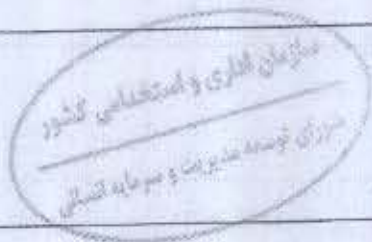 سازمان اداری و استخدامی کشور
شورای توسعه مدیریت و سرمایه انسانی